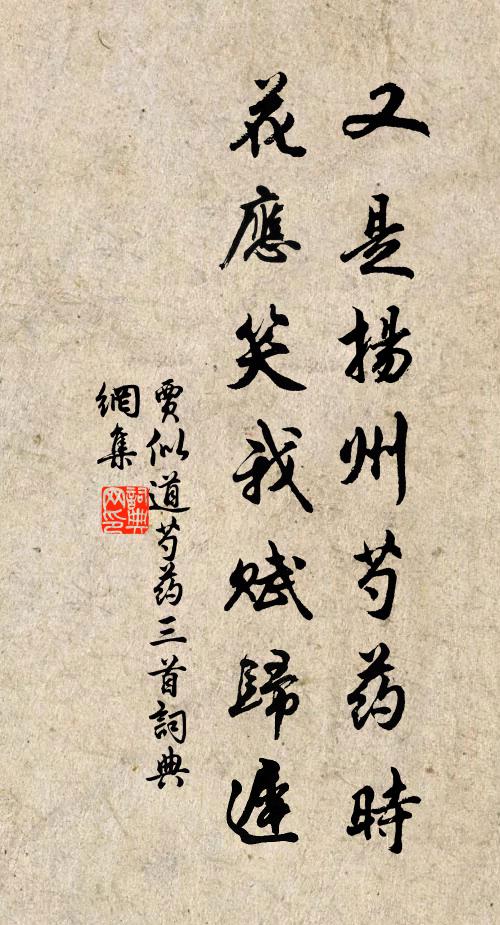 又是揚州芍药時
花應笑我賦歸遲
賈似道芍药三首詞典
網集
詞典網印